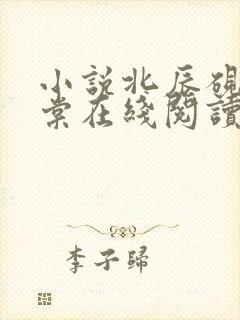 小說北辰硯
棠在綫閱讀
李子歸